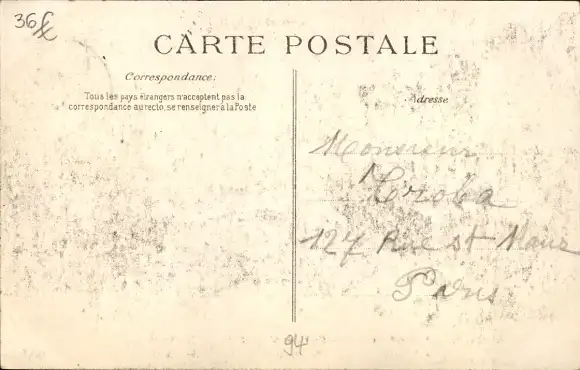 36
CARTE POSTALE
Correspondance:
Tous les pays étrangers n'acceptent pas la
correspondance au recto, se renseigner à la Poste
Adresse
Monsieur
127 Rue St Maur
Paris
94